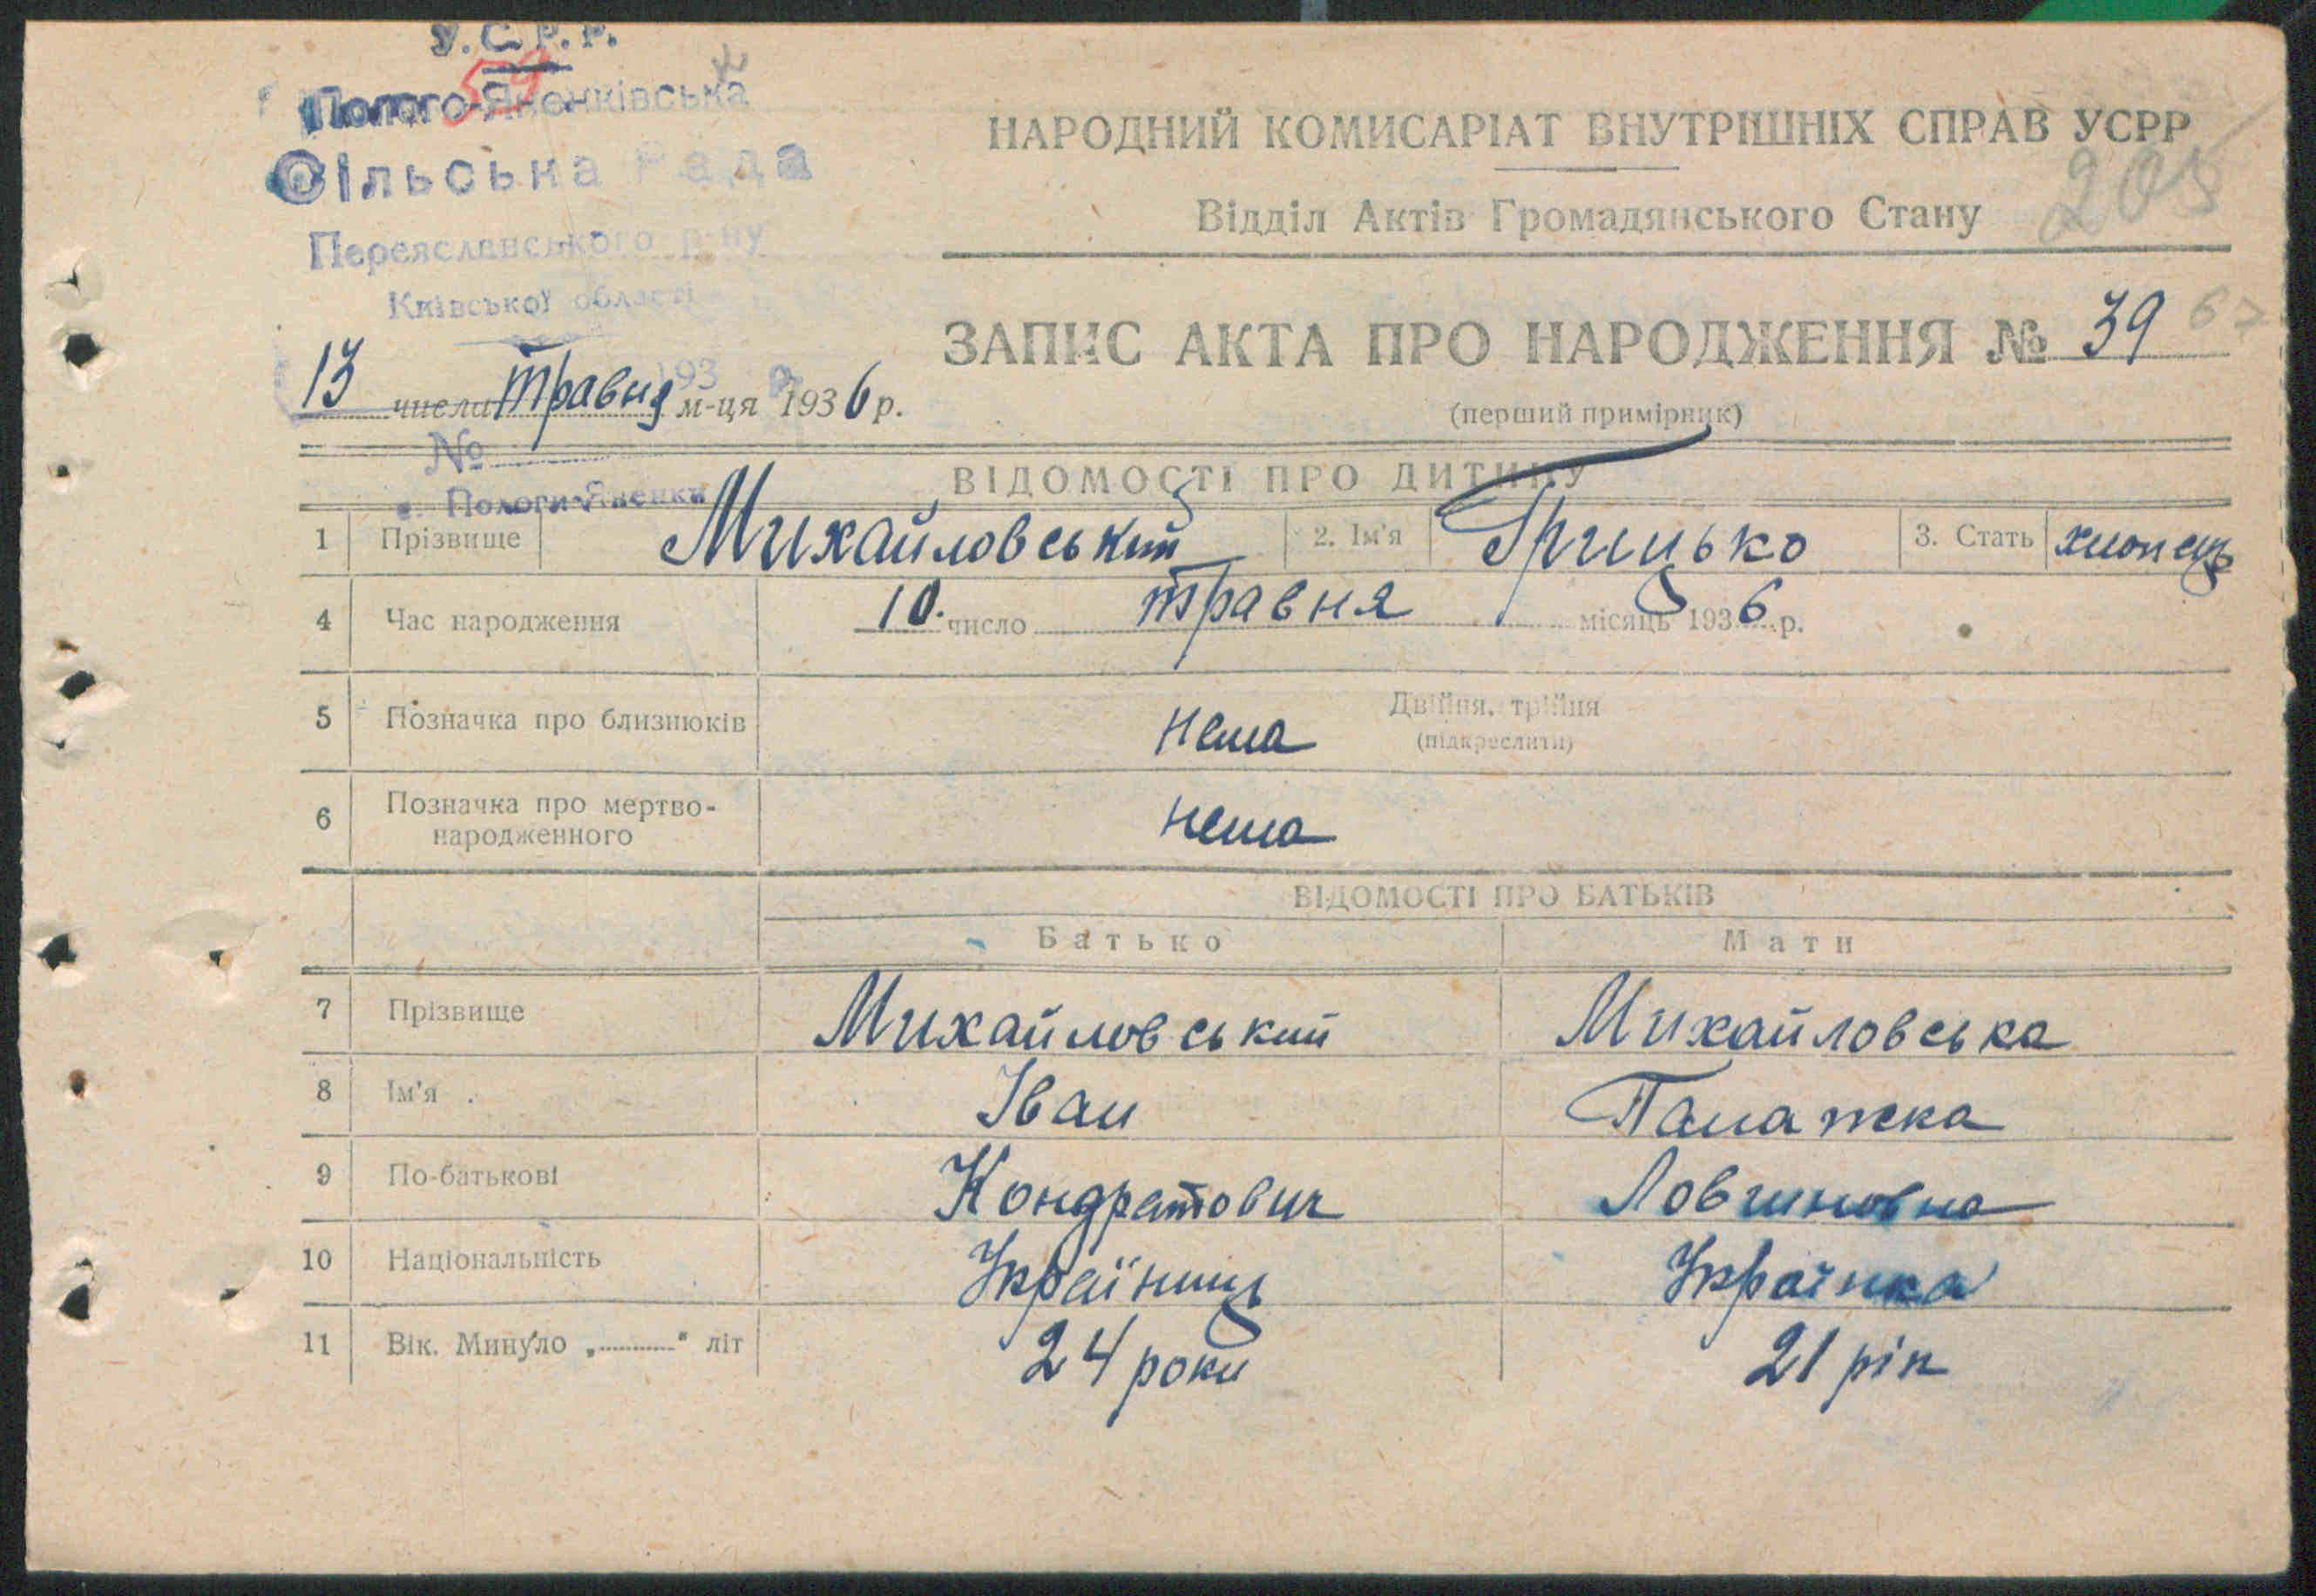 У.С.Р.Р.
59
Полого-Яненківська
Сільська Рада
Переяславського р-ну
Київської області
193 р.
13 числа травня м-ця 1936 р.
№
с. Пологи-Яненки
НАРОДНИЙ КОМИСАРІАТ ВНУТРІШНІХ СПРАВ УСРР
205
Відділ Актів Громадянського Стану
ЗАПИС АКТА ПРО НАРОДЖЕННЯ № 39 67
(перший примірник)
ВІДОМОСТІ ПРО ДИТИНУ
1 Прізвище Михайловський 2. Ім'я Грицько 3. Стать хлопець
4 Час народження 10. число травня місяць 1936 р.
5 Позначка про близнюків нема Двійня, трійня
(підкреслити)
6 Позначка про мертво-
народженного нема
ВІДОМОСТІ ПРО БАТЬКІВ
Батько Мати
7 Прізвище Михайловський Михайловська
8 Ім'я Іван Палажка
9 По-батькові Кондратович
10 Національність Українець Українка
11 Вік. Минуло „ “ літ 24 роки 21 рік